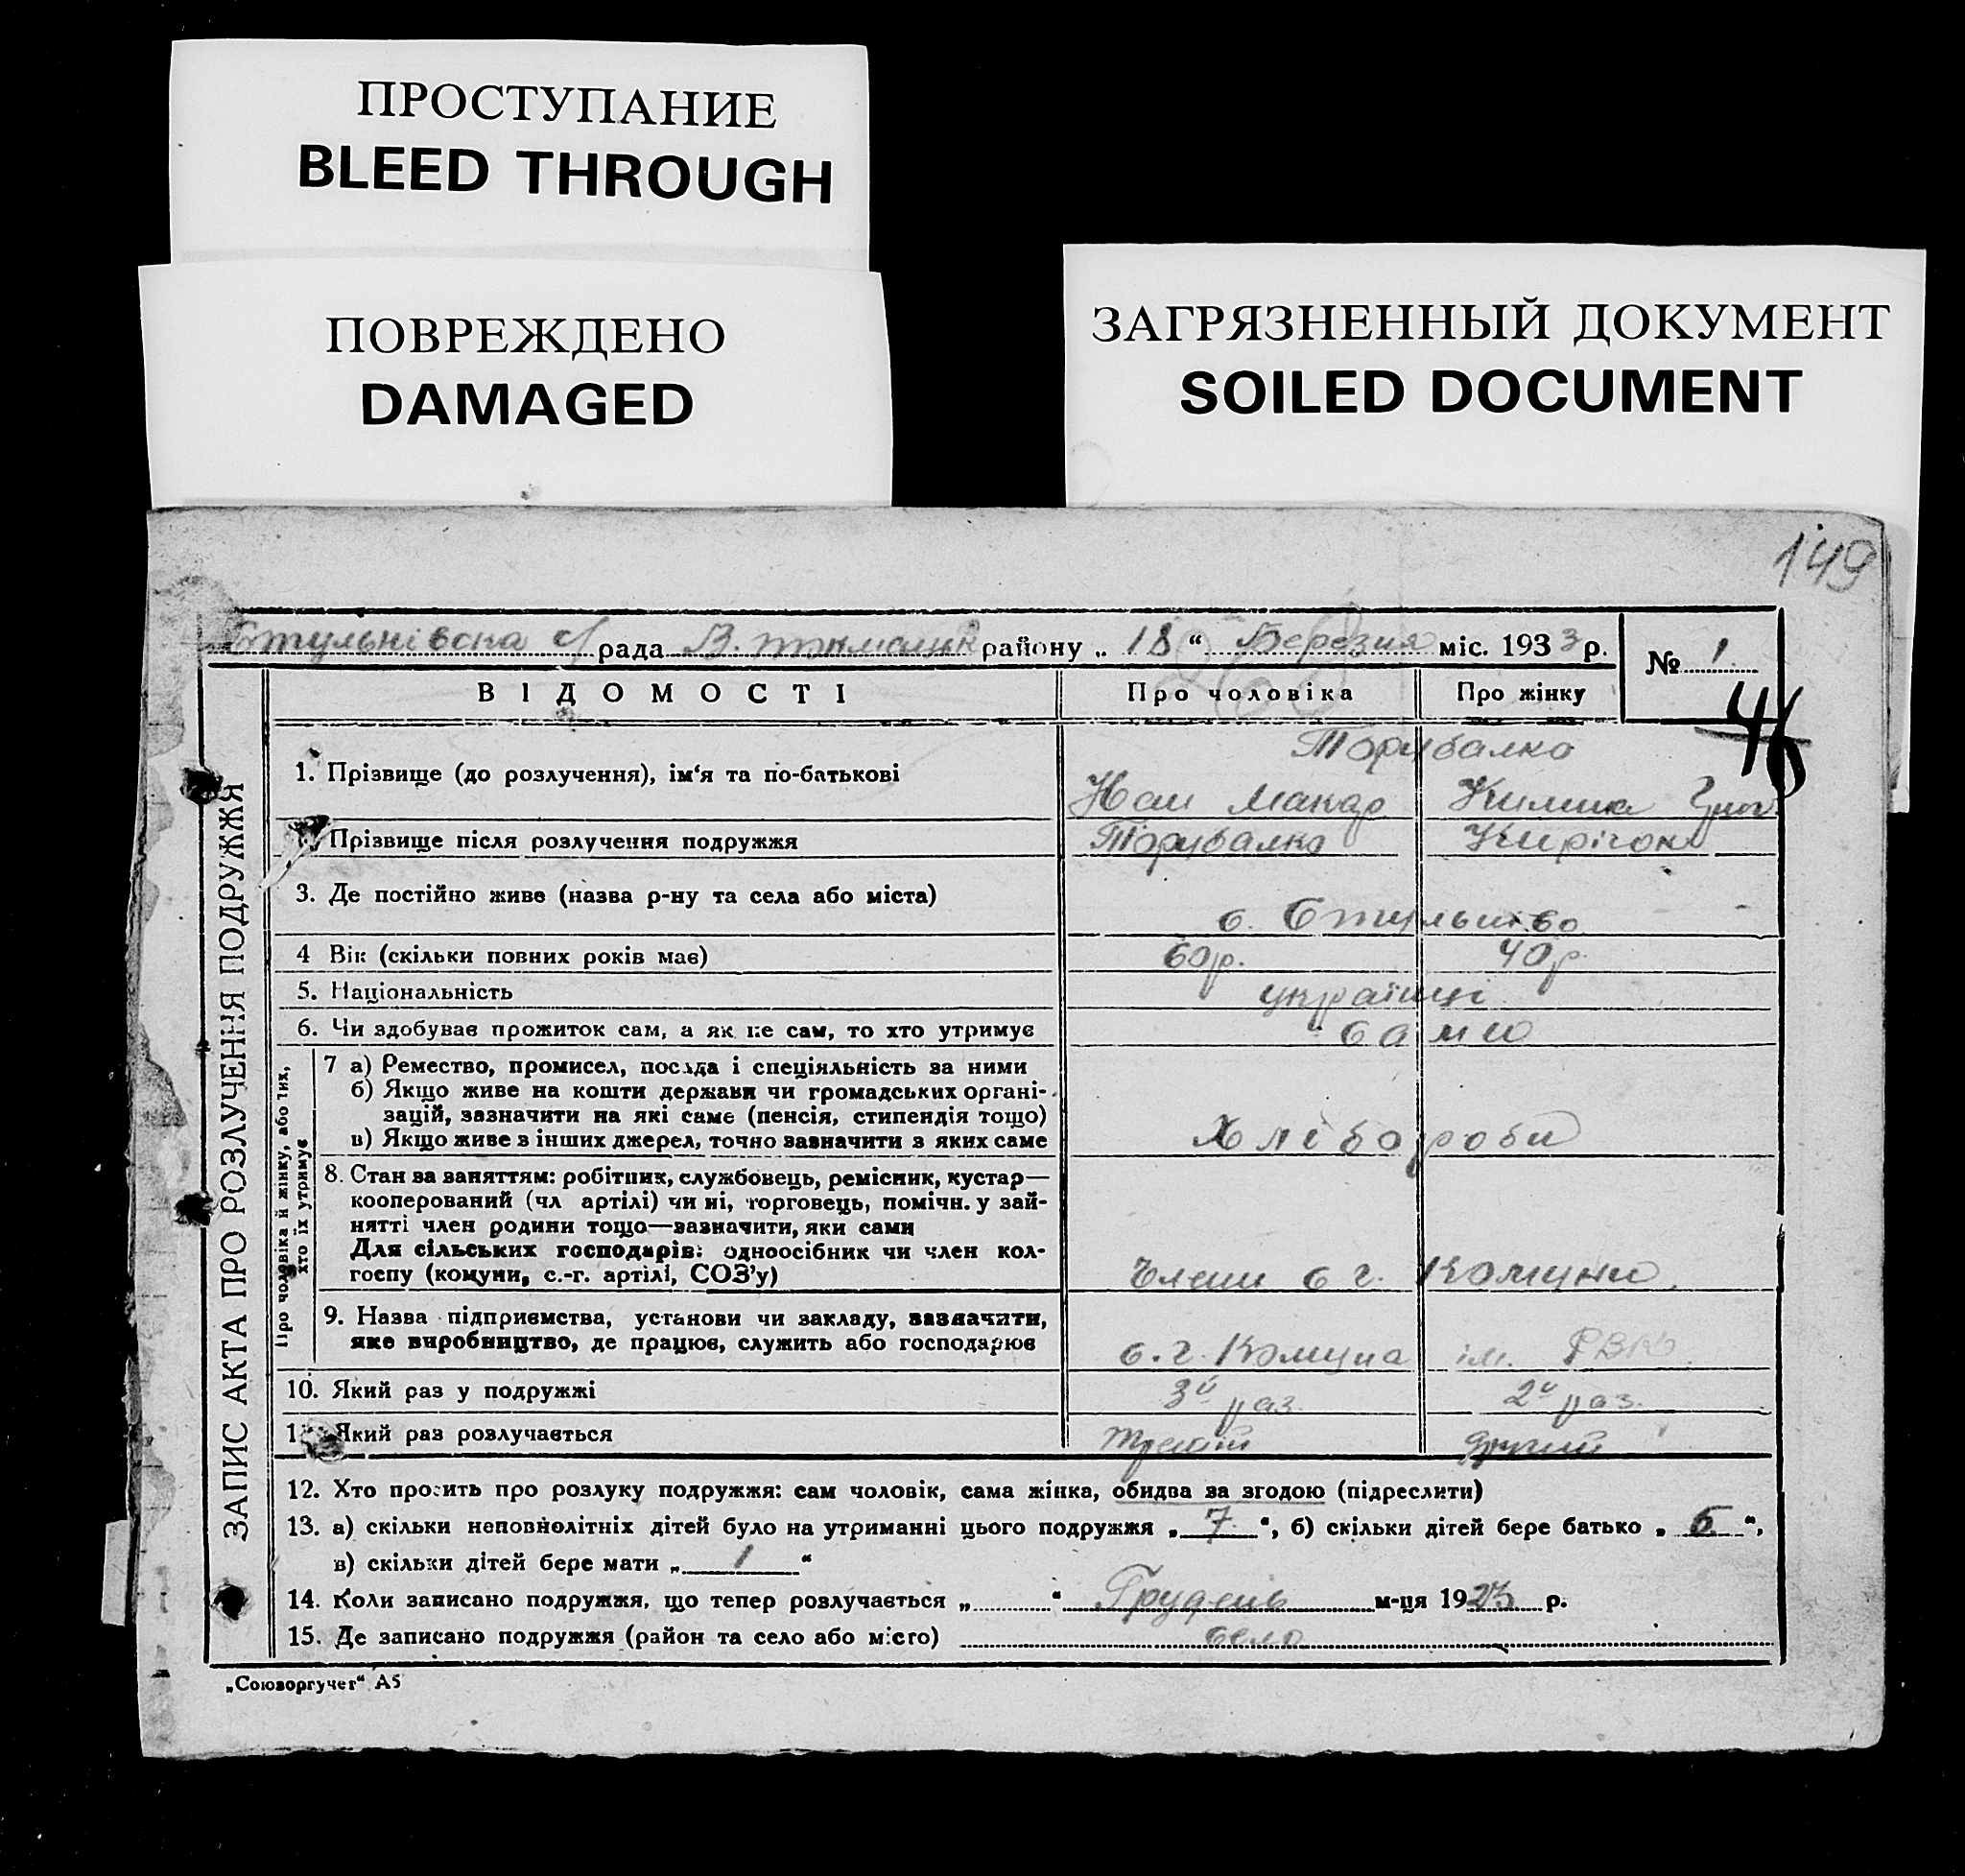 ПРОСТУПАНИЕ
BLEED THROUGH
ПОВРЕЖДЕНО
DAMAGED
ЗАГРЯЗНЕННЫЙ ДОКУМЕНТ
SOILED DOCUMENT
149
Стульнівска с/рада В. Токмацьк району „18“ Березня міс. 1933 р. № 1
46
ВІДОМОСТІ Про чоловіка Про жінку
ЗАПИС АКТА ПРО РОЗЛУЧЕННЯ ПОДРУЖЖЯ
Торубалко
1. Прізвище (до розлучення), ім‘я та по-батькові Макар
Прізвище після розлучення подружжя Торубалко Кирічок
3. Де постійно живе (назва р-ну та села або міста) с. Стульнєво
4 Вік (скільки повних років має) 60 р. 40 р.
5. Національність українці
6. Чи здобуває прожиток сам, а як не сам, то хто утримує сами
Про чоловіка й жінку, або тих,
хто їх утримує
7 а) Ремество, промисел, посада і спеціяльність за ними
б) Якщо живе на кошти держави чи громадських органі-
зацій, зазначити на які саме (пенсія, стипендія тощо)
в) Якщо живе в інших джерел, точно зазначити з яких саме Хлібороби
8. Стан за заняттям: робітник, службовець, ремісник, кустар—
кооперований (чл артілі) чи ні, торговець, помічн. у зай-
нятті член родини тощо—зазначити, яки сами
Для сільських господарів: одноосібник чи член кол-
госпу (комуни, с.-г. артілі, СОЗ’у) Члени с г. Комуни
9. Назва підприємства, установи чи закладу, зазначити,
яке виробництво, де працює, служить або господарює с.г. Комуна ім. РВК
10. Який раз у подружжі 3й раз 2й раз.
Який раз розлучається третій другий
12. Хто просить про розлуку подружжя: сам чоловік, сама жінка, обидва за згодою (підреслити)
13. а) скільки неповнолітніх дітей було на утриманні цього подружжя „ 7 “, б) скільки дітей бере батько „ 6 “,
в) скільки дітей бере мати „ 1 “
14. Коли записано подружжя, що тепер розлучається „ “ Грудень м-ця 1923 р.
15. Де записано подружжя (район та село або місто) село
„Союзоргучет“ А5